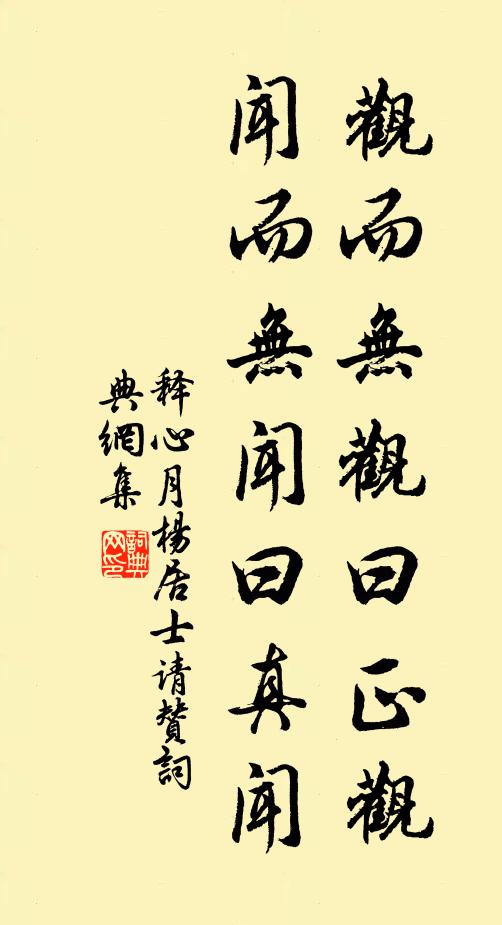 觀而無觀曰正觀
聞而無聞曰真聞
释心月楊居士请赞詞
典網集
詞典网印